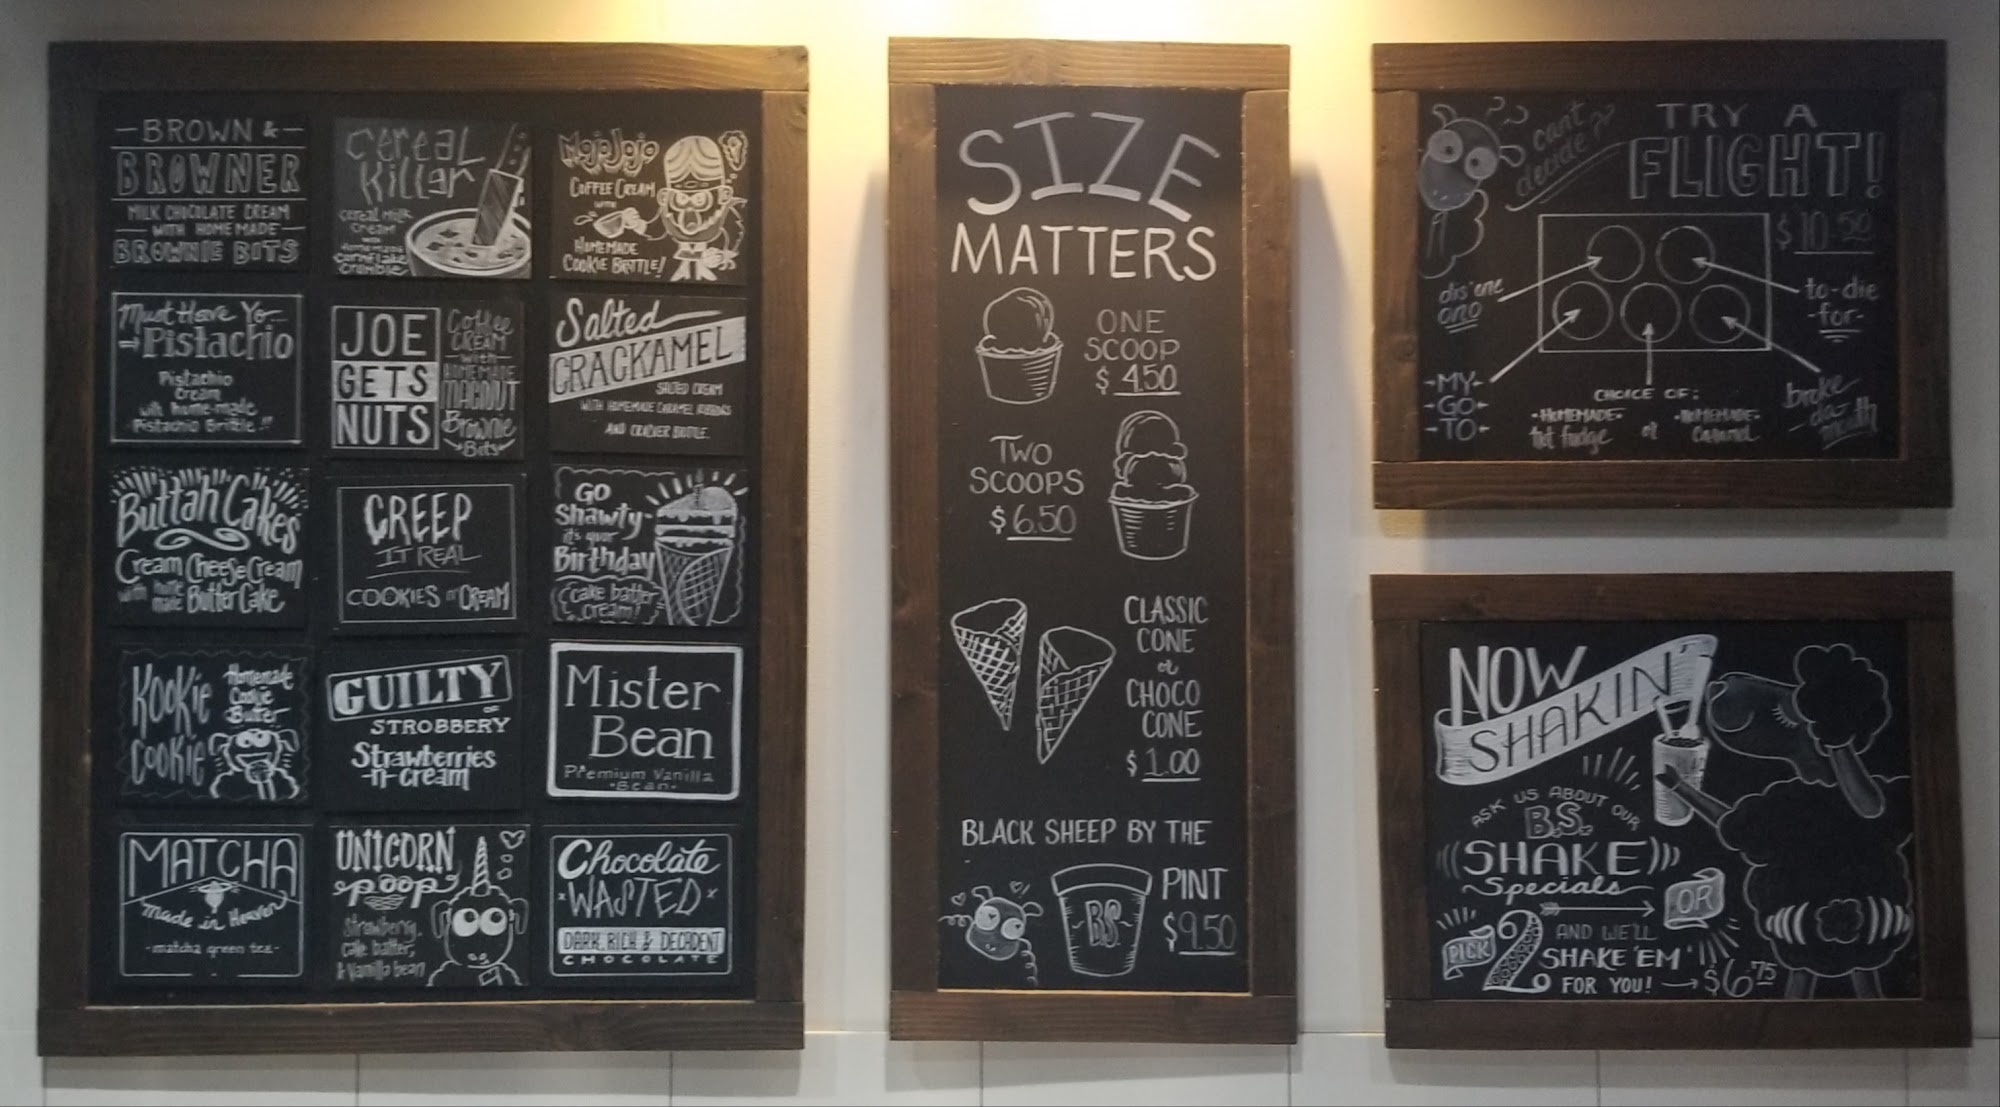 BROWN &
BROWNER
MILK CHOCOLATE CREAM
WITH HOMEMADE
BROWNIE BITS
Cereal
Killer
Cereal Milk
Cream
with
Homemade
Cornflake
Crumble
MojoJojo
COFFEE CREAM
WITH
HOMEMADE
COOKIE BRITTLE!
Must Have Yo...
Pistachio
Pistachio
Cream
with home-made
Pistachio Brittle!!
JOE
GETS
NUTS
Coffee
CREAM
with
HOMEMADE
Brownie
Bits
Salted
CRACKAMEL
SALTED CREAM
WITH HOMEMADE CARAMEL RIBBONS
AND CRACKER BRITTLE.
Buttah Cakes
Cream Cheese Cream
with home made Butter Cake
CREEP
IT REAL
COOKIES n' CREAM
GO
Shawty-
it's your
Birthday
Cake batter
cream!
Kookie
Cookie
Homemade
Cookie
Butter
GUILTY
OF
STROBBERY
Strawberries
-n-cream
Mister
Bean
Premium Vanilla
Bean
MATCHA
made in Heaven
-matcha green tea-
UNICORN
poop
Strawberry,
cake batter,
& Vanilla bean
Chocolate
WASTED
DARK, RICH & DECADENT
CHOCOLATE
SIZE
MATTERS
ONE
SCOOP
$ 4.50
TWO
SCOOPS
$ 6.50
CLASSIC
CONE
or
CHOCO
CONE
$ 1.00
BLACK SHEEP BY THE
PINT
$9.50
B.S.
can't
decide?
TRY A
FLIGHT!
$10.50
dis'one
ono
to-die
-for-
-MY-
-GO-
-TO-
CHOICE OF:
•HOMEMADE•
hot fudge
or
•HOMEMADE•
Caramel
broke
da
mouth
NOW
SHAKIN'
ASK US ABOUT OUR
B.S.
SHAKE
Specials
OR
PICK 2 AND WE'LL
SHAKE 'EM
FOR YOU! → $6.75